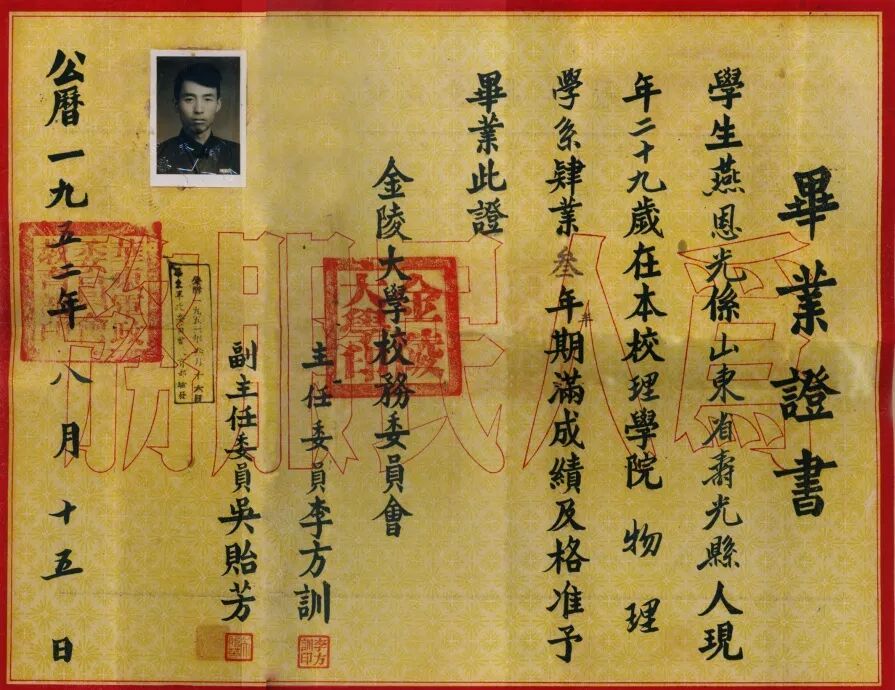 畢業證書
學生燕恩光係山東省壽光縣人現
年二十九歲在本校理學院物理
學系肄業叁年期滿成績及格准予
畢業此證
金陵大學校務委員會
主任委員李方訓
副主任委員吳貽芳
公曆一九五二年八月十五日
為人民服務
金陵
大學印
李方
訓印